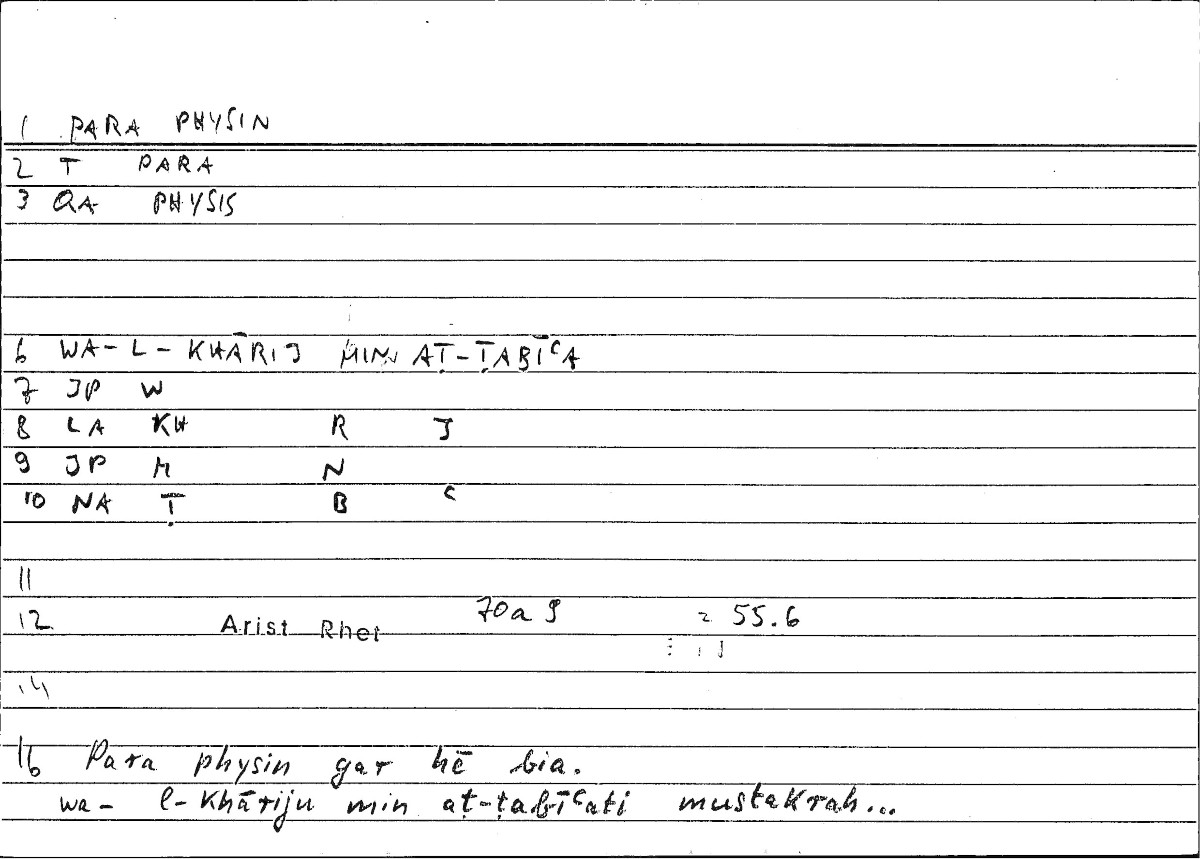 1 PARA PHYSIN
2 T PARA
3 QA PHYSIS
6 WA-L-KHĀRIJ MIN AṬ-ṬABĪʿA
7 JP W
8 LA KH R J
9 JP M N
10 NA Ṭ B ʿ
11
12 Arist Rhet 70a9 = 55.6
14
16 Para physin gar hē bia.
wa-l-khāriju min aṭ-ṭabīʿati mustakrah...